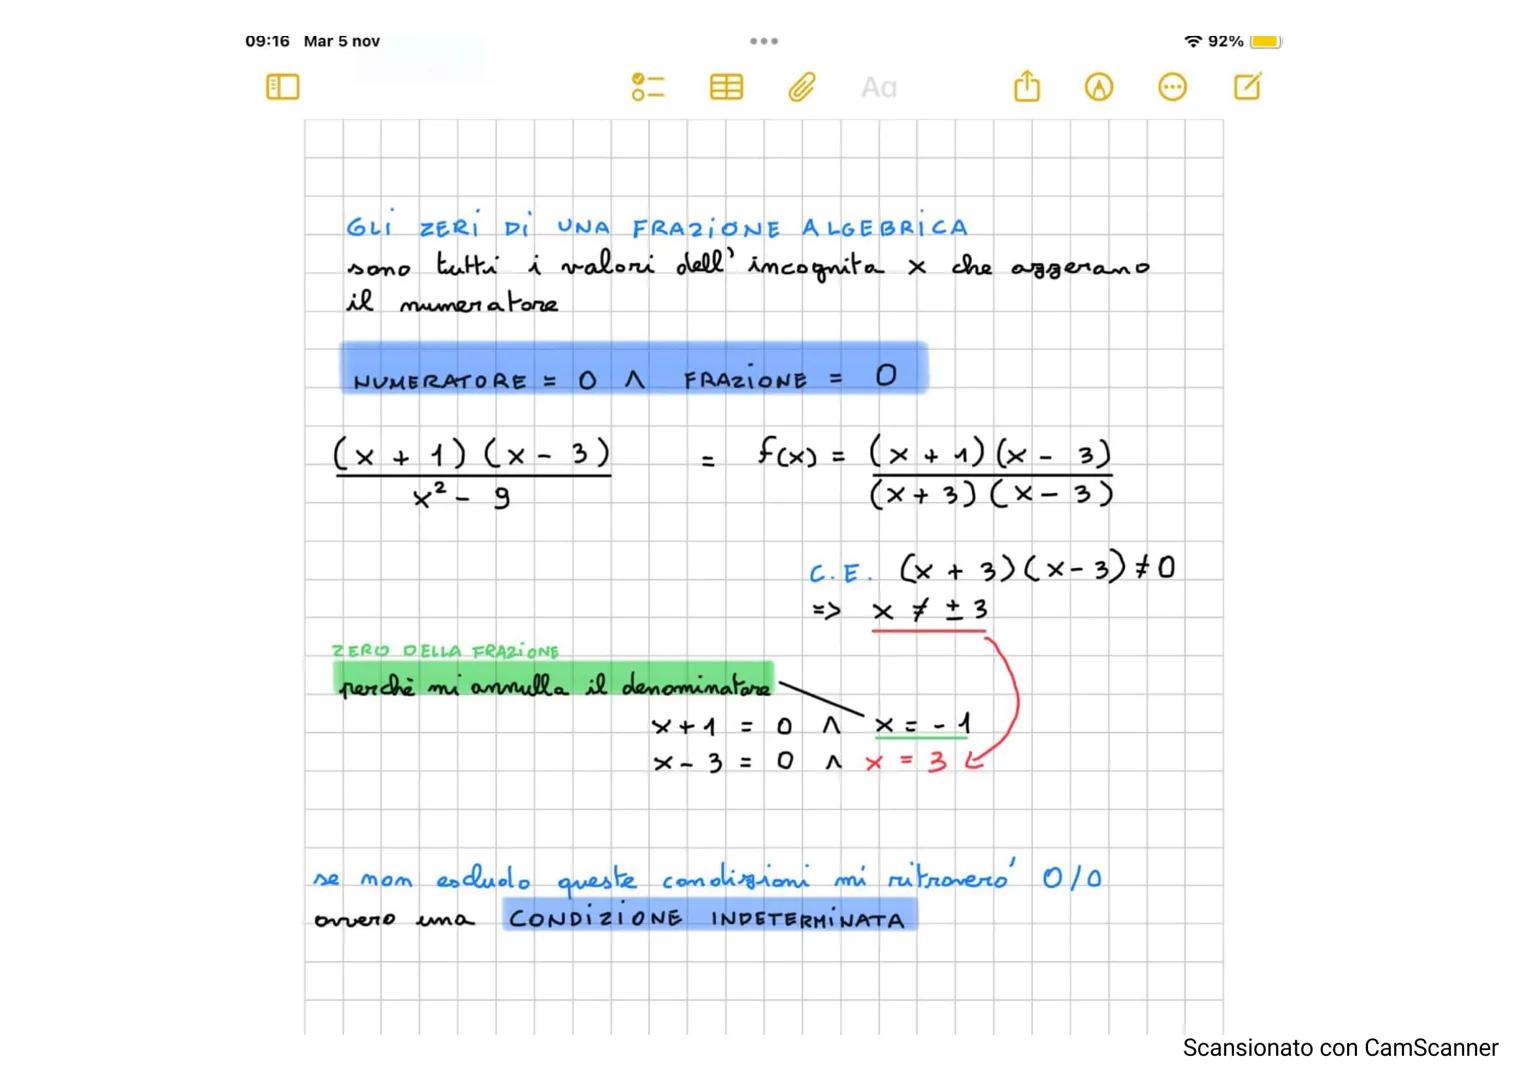 09:16 Mar 5 nov
92%
Aa
GLi ZERi Di UNA FRAZiONE ALGEBRiCA
sono tutti i valori dell' incognita x che azzerano
il numeratore
NUMERATORE = 0 ∧ FRAZiONE = 0
(x + 1) (x - 3) = f(x) = (x + 1)(x - 3)
x² - 9 (x + 3)(x - 3)
C.E. (x + 3)(x - 3) ≠ 0
=> x ≠ ± 3
ZERO DELLA FRAZiONE
perchè mi annulla il denominatore
x + 1 = 0 ∧ x = - 1
x - 3 = 0 ∧ x = 3
se non escludo queste condizioni mi ritroverò 0/0
ovvero una CONDiZiONE INDETERMiNATA
Scansionato con CamScanner